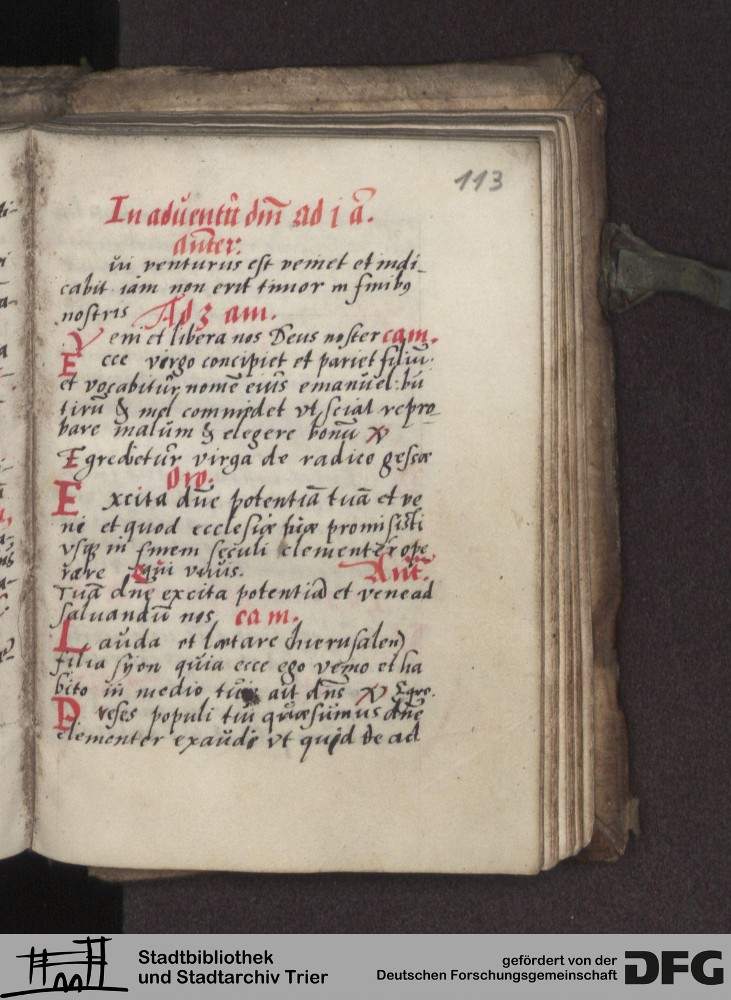 113
In adűentű dm̄ ad i ā.
an̄ter:
űi venturus est veniet et indi_
cabit iam non erit timor in finibꝯ
nostris Ad 3 am.
Veni et libera nos Deus noster cam.
Ecce virgo concipiet et pariet filiū.
et vocabitűr nomē eius emanűel: bű
tirű & mel commedet vt sciat repro_
bare malűm & elegere bonű
Egredietűr virga de radice gessæ
Oro.
Excita dn̄e potentiā tuā et ve
ni et quod ecclesiæ tuæ promisisti
vsqꝫ in finem secűli clementer ope
rare qui viuis. Ant̄.
Tuā dn̄e excita potentiā et vene ad
saluandű nos cam.
Lauda et lætare hierusalem
filia syon quia ecce ego venio et ha
bito in medio tűi ait dn̄s Egre.
Preses populi tui quæsumus dn̄e
clementer exaudi vt quid de ad
Stadtbibliothek
und Stadtarchiv Trier
gefördert von der
Deutschen Forschungsgemeinschaft
DFG